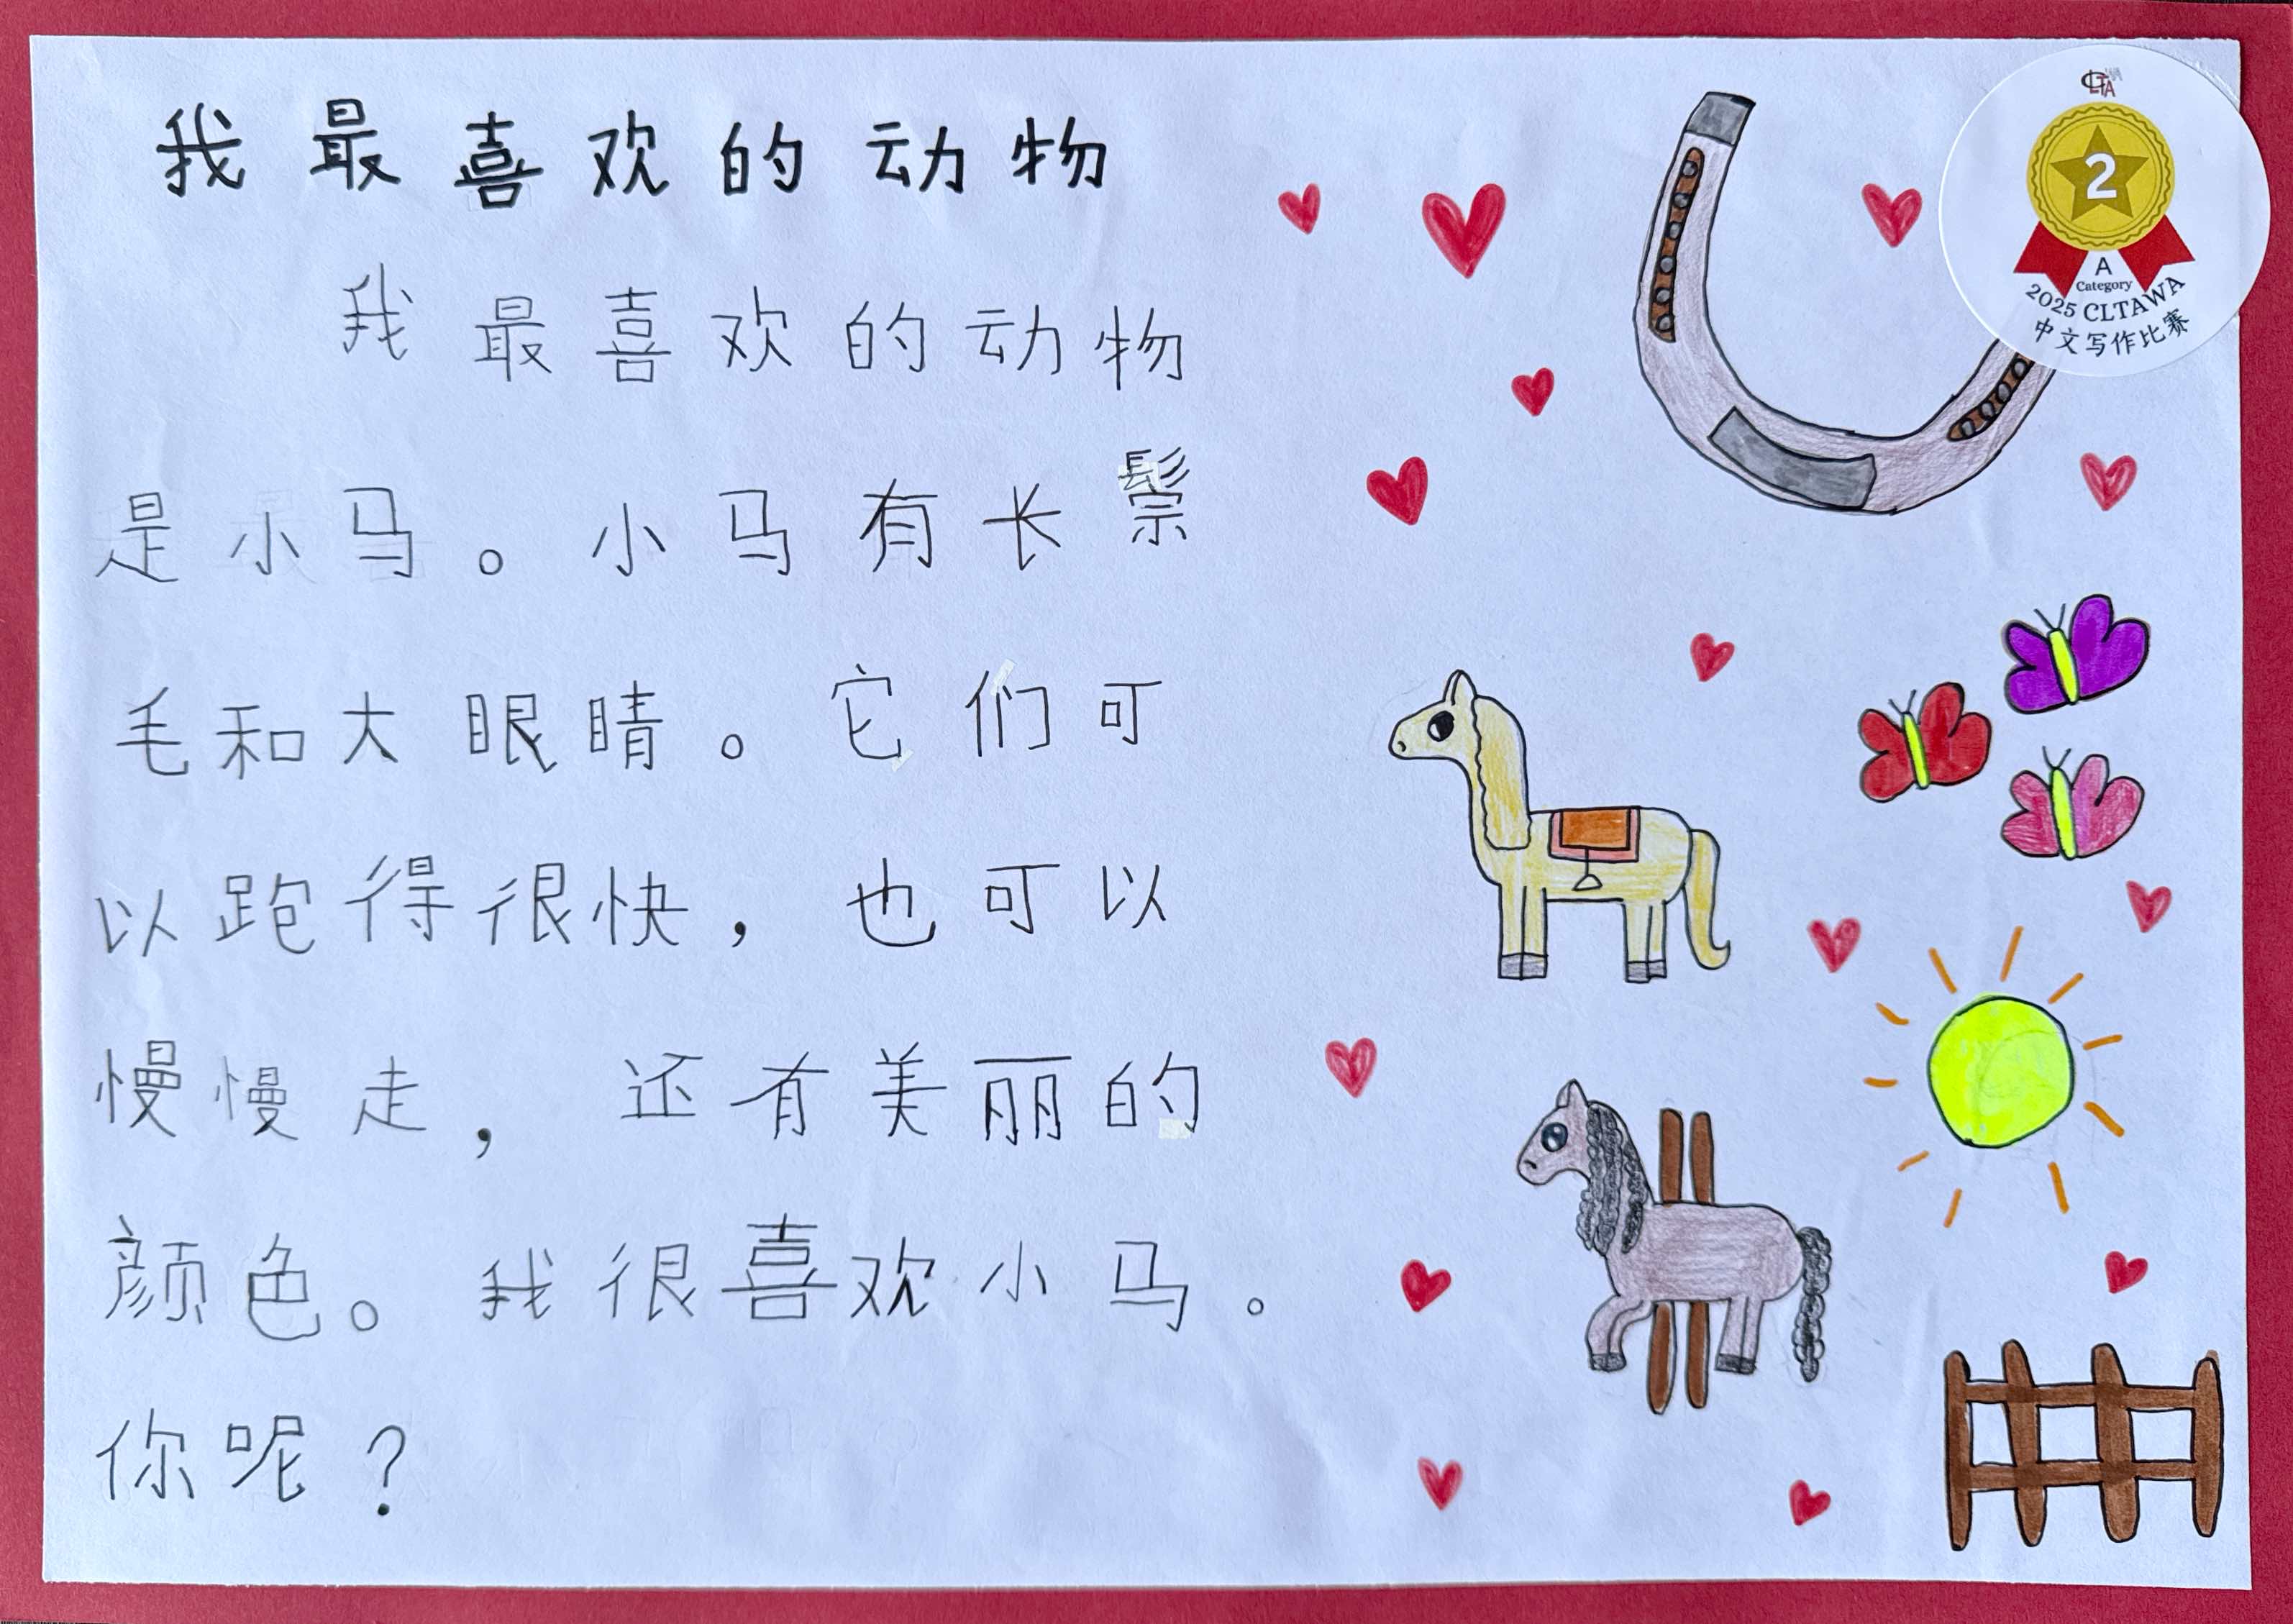 我最喜欢的动物
我最喜欢的动物
是小马。小马有长鬃
毛和大眼睛。它们可
以跑得很快，也可以
慢慢走，还有美丽的
颜色。我很喜欢小马。
你呢？
CLTAWA
2
A
Category
2025 CLTAWA
中文写作比赛